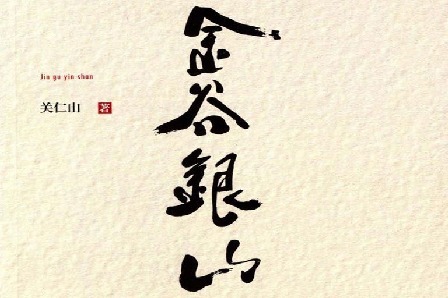 金谷銀山
Jin gu yin shan
关仁山 著